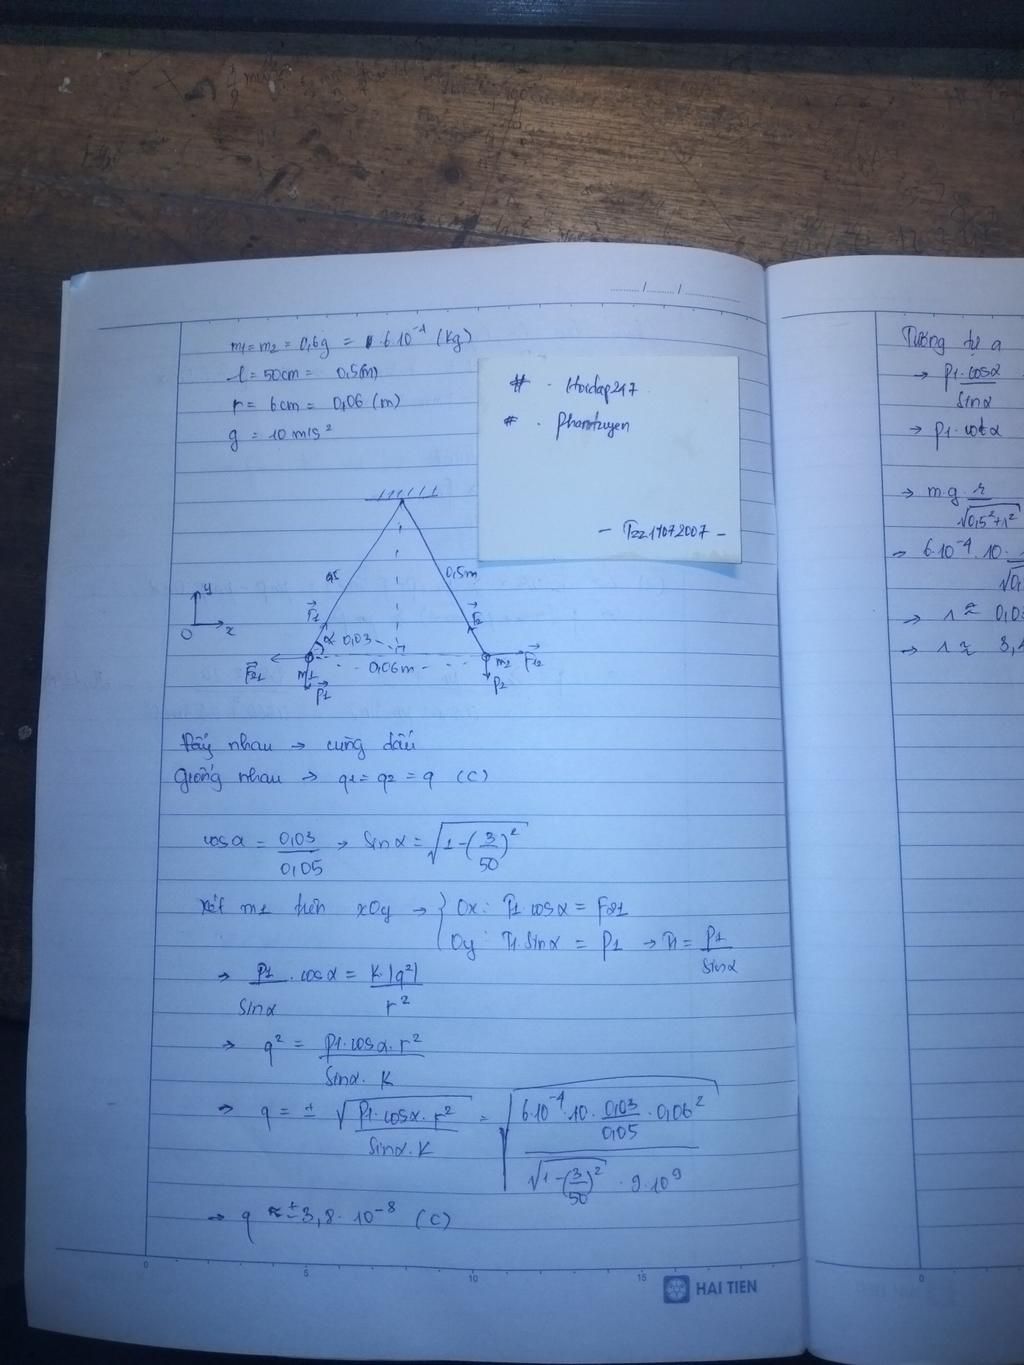 ....../....../............
m1=m2 = 0,6g = 6.10⁻⁴ (kg)
l = 50cm = 0,5(m)
r = 6cm = 0,06 (m)
g = 10 m/s²
# . Hoidap247
# . phamtuyen
0,5m
y
O x
F₁
α 0,03
F₂₁ m1 0,06m m2 F₁₂
P1 P2
Đẩy nhau → cùng dấu
Giống nhau → q1 = q2 = q (C)
cosα = 0,03/0,05 → Sinα = √(1-(3/50)²)
Xét m1 trên xOy → { Ox: T1 cosα = F21
Oy: T1. Sinα = P1 → T1 = P1/Sinα
→ P1/Sinα . cosα = K.|q²|/r²
→ q² = P1.cosα.r²/Sinα.K
→ q = ± √(P1.cosα.r²/Sinα.K) = √(6.10⁻⁴.10.0,03/0,05.0,06²/√(1-(3/50)²).9.10⁹)
→ q ≈ ±3,8.10⁻⁸ (C)
0 5 10 15
HẢI TIẾN
Tương tự a
→ P1.cosα/Sinα
→ P1.cotα
→ m.g.
→ 6.10⁻⁴.10.
0